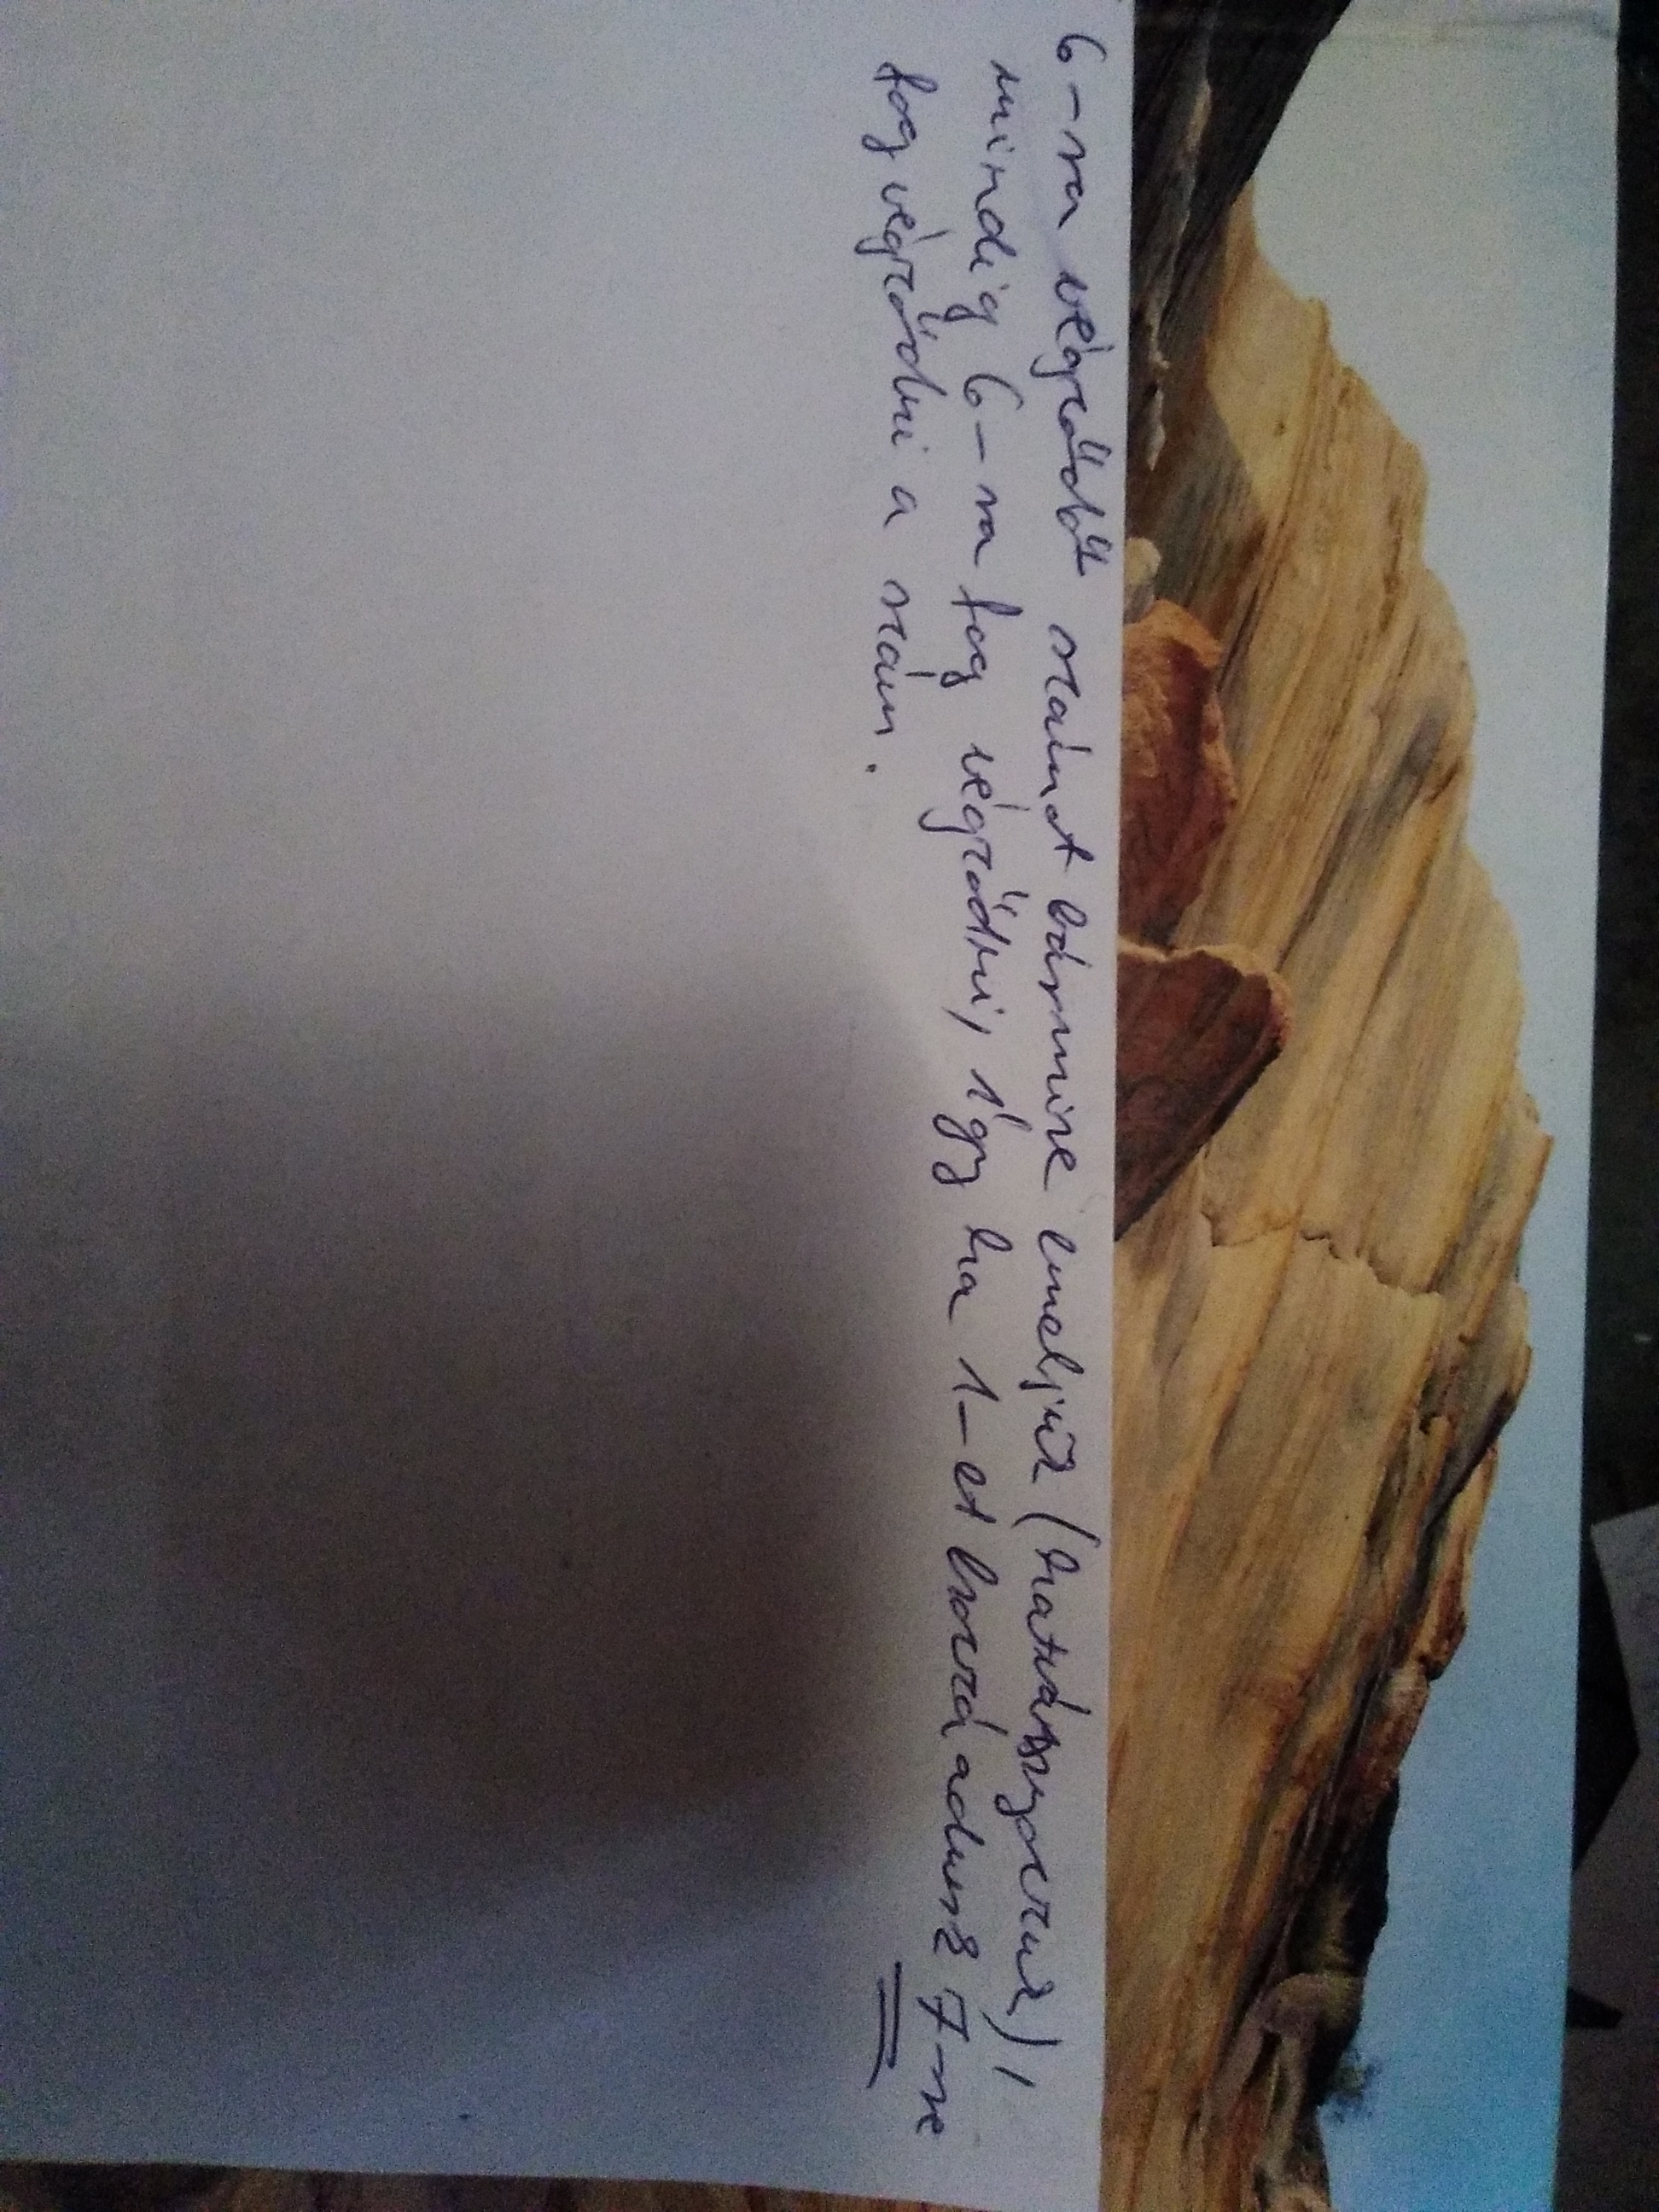 6-ra végződő számot bármire emeljük (hatványozzuk),
mindig 6-ra fog végződni, így ha 1-et hozzá adunk 7-re
fog végződni a szám.